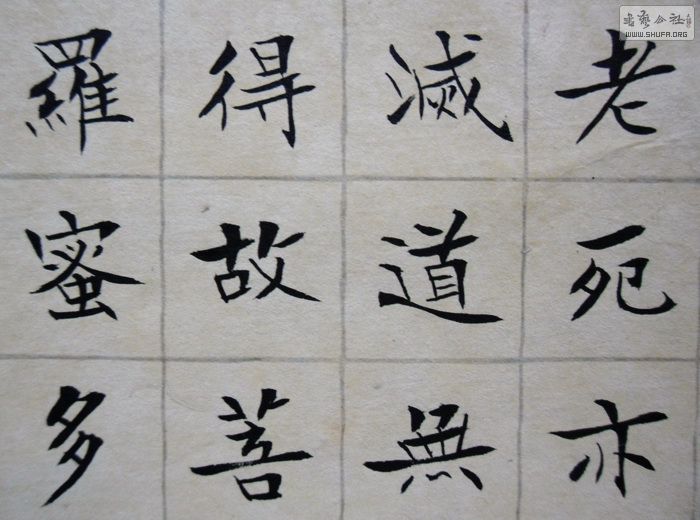 老死亦
滅道無
得故菩
羅蜜多
書藝公社
WWW.SHUFA.ORG